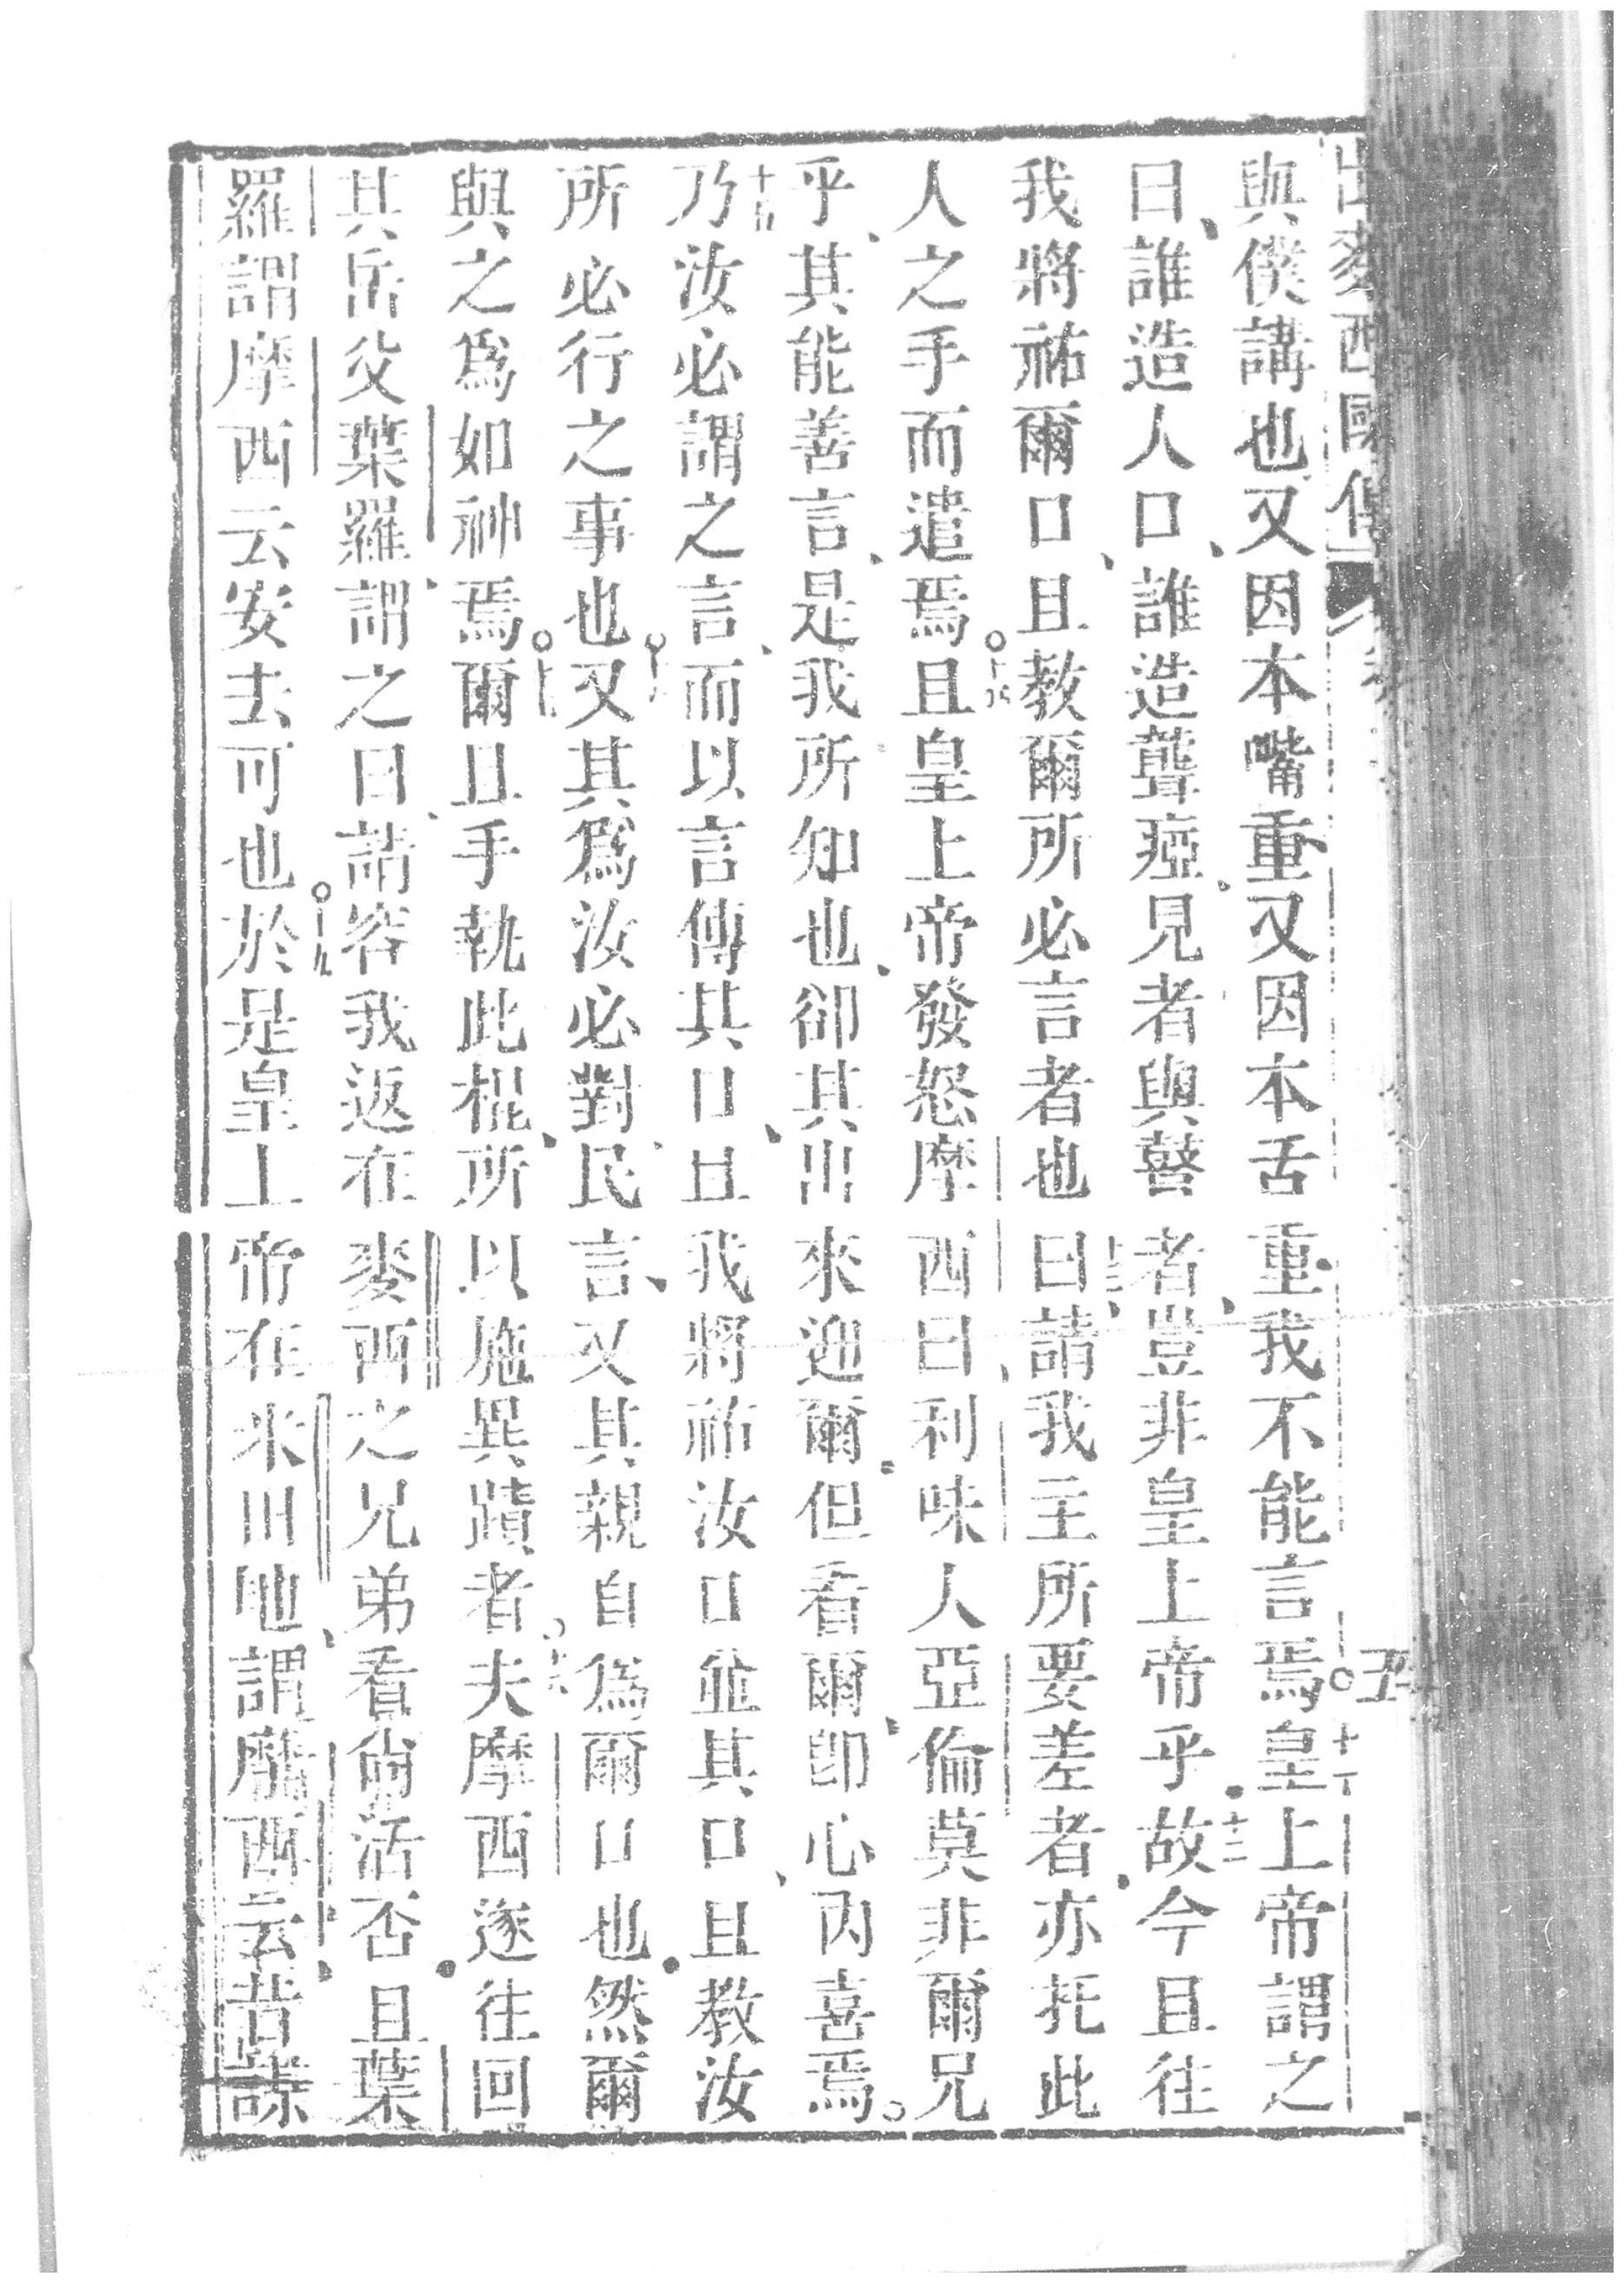 出麥西國傳 五
與僕講也又因本嘴重又因本舌重我不能言焉十一皇上帝謂之
曰誰造人口誰造聾瘂見者與瞽者豈非皇上帝乎十二故今且往
我將祐爾口且教爾所必言者也十三曰請我主所要差者亦托此
人之手而遣焉十四且皇上帝發怒摩西曰利味人亞倫莫非爾兄
乎其能善言是我所知也卻其出來迎爾但看爾即心內喜焉
十五乃汝必謂之言而以言傳其口且我將祐汝口並其口且教汝
所必行之事也十六又其爲汝必對民言又其親自爲爾口也然爾
與之爲如神焉十七爾且手執此棍所以施異蹟者十八夫摩西遂往回
其岳父葉羅謂之曰請容我返在麥西之兄弟看尙活否且葉
羅謂摩西云安去可也十九於是皇上帝在米田地謂摩西云昔謀